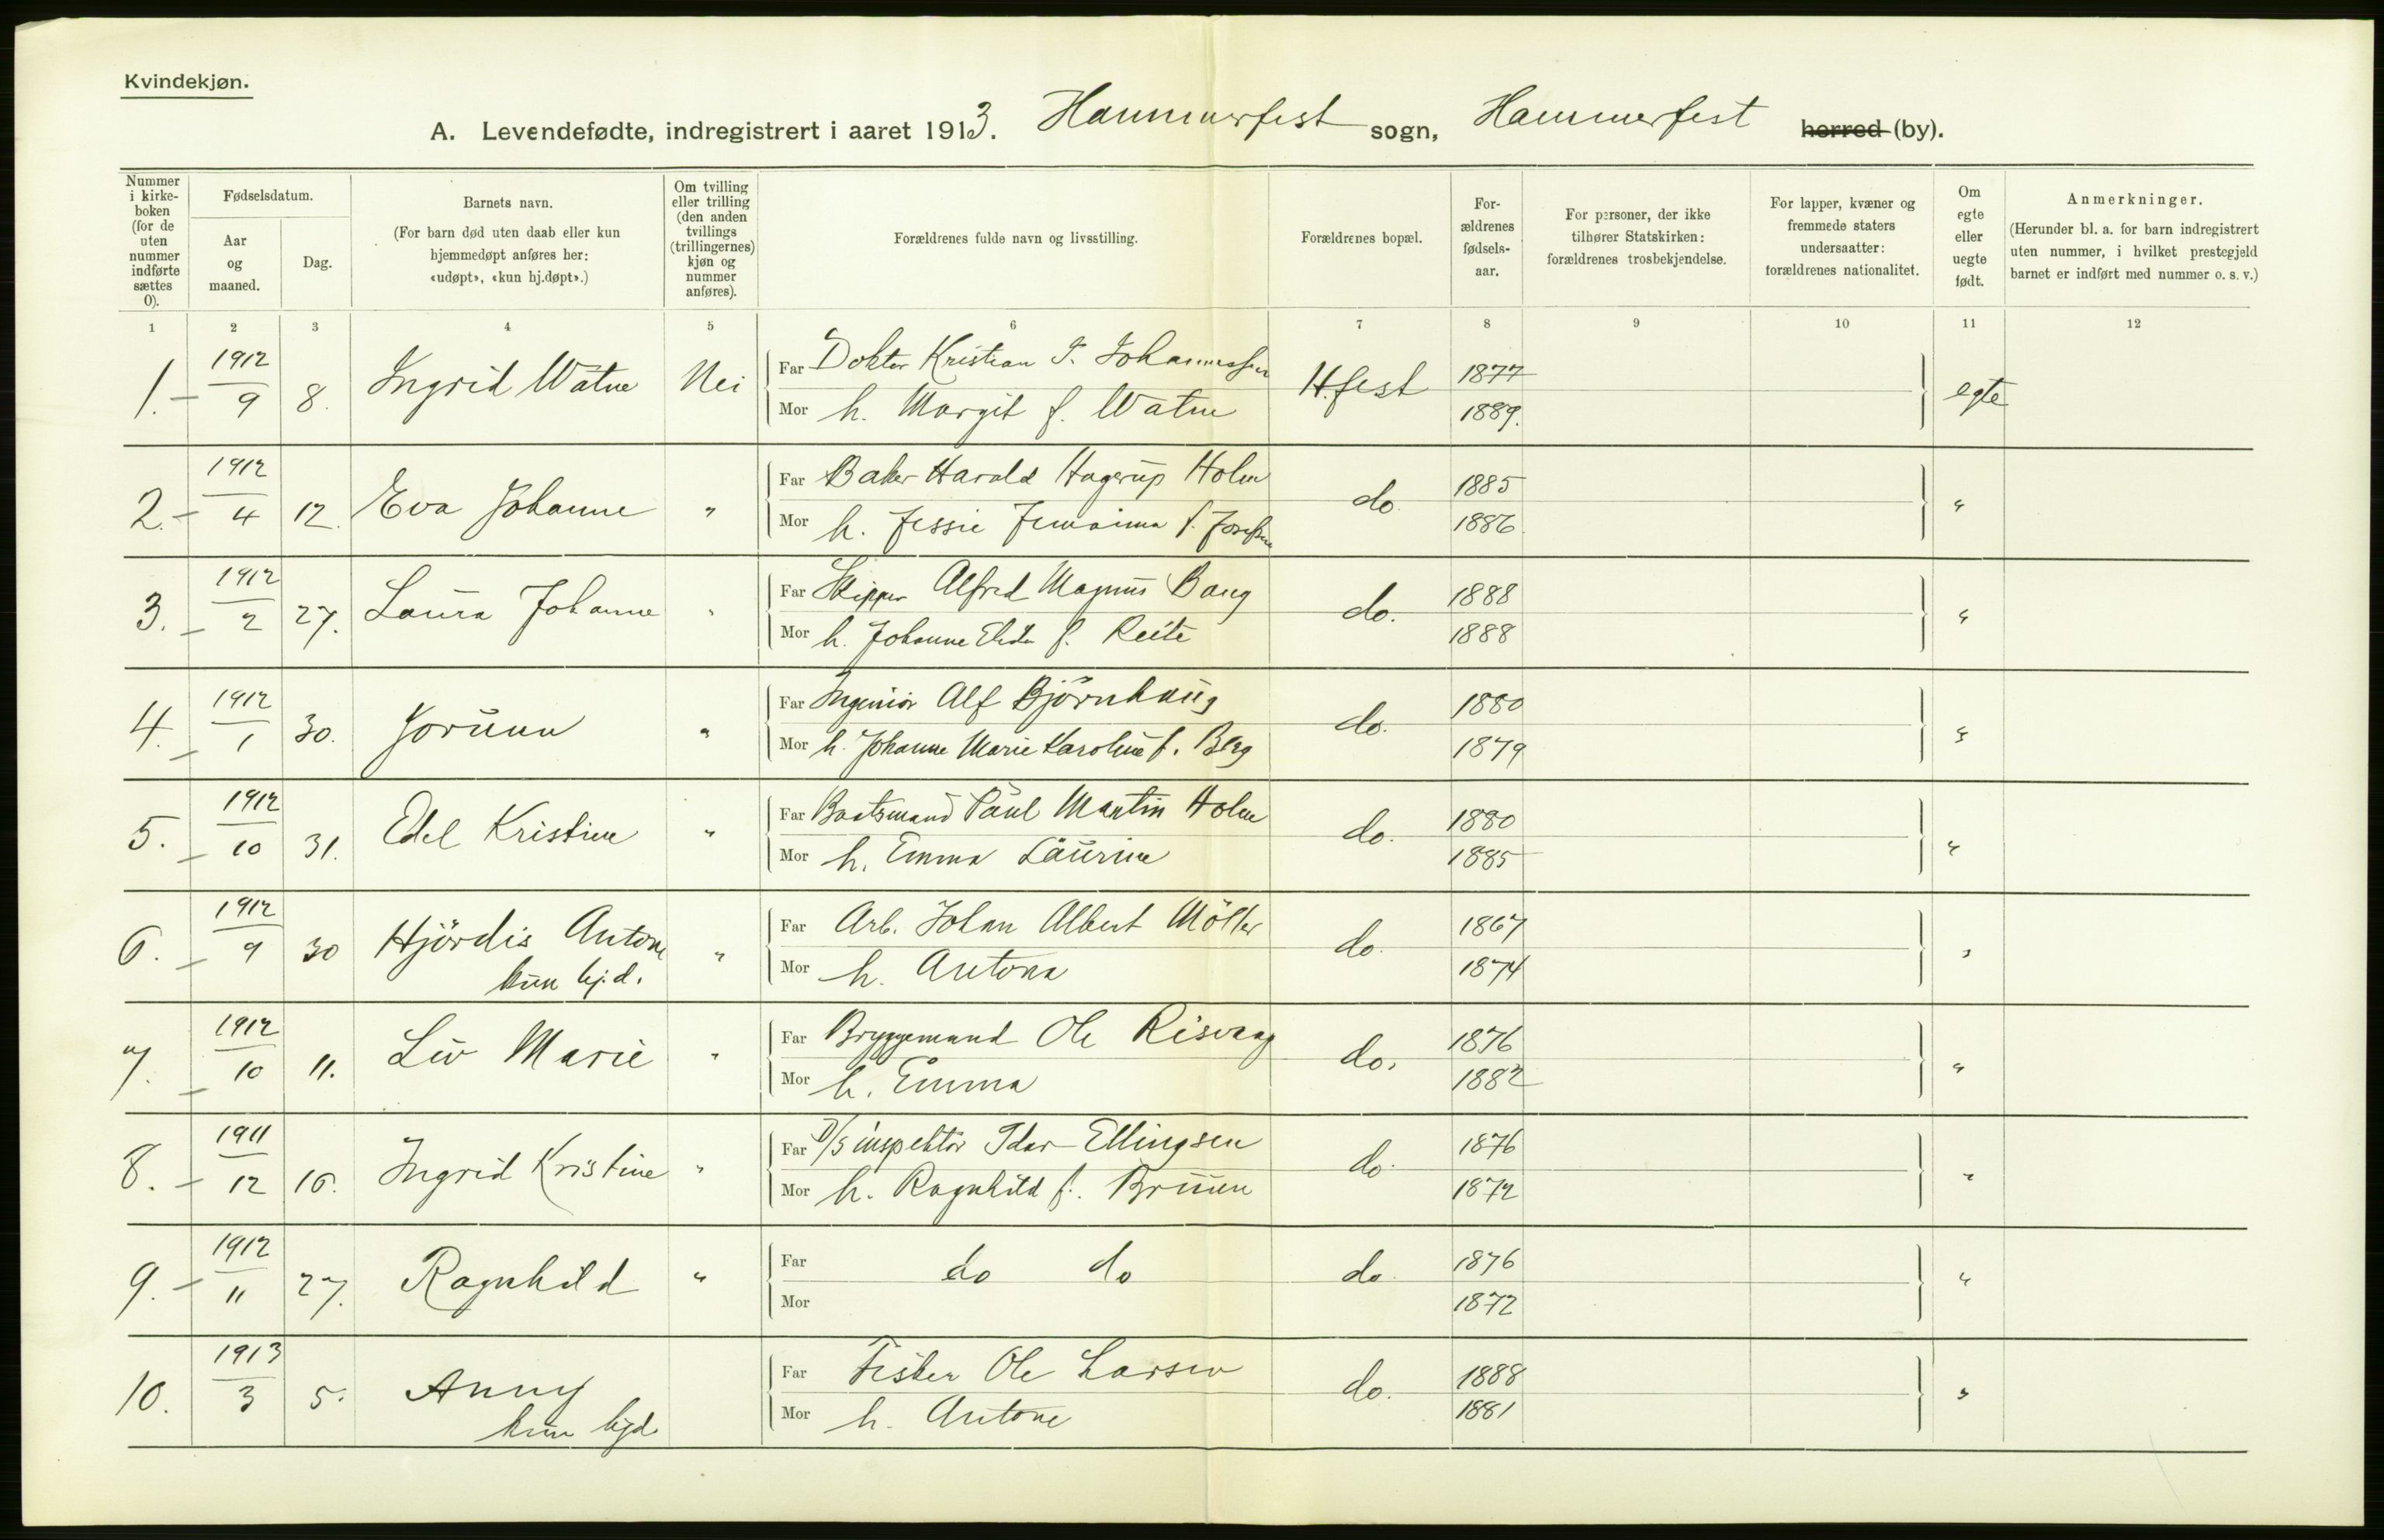 Kvindekjøn.
A. Levendefødte, indregistrert i aaret 1913. Hammerfest sogn, Hammerfest herred (by).
Nummer i kirkeboken (for de uten nummer indførte sættes 0).
Fødselsdatum.
Aar og maaned.
Dag.
Barnets navn.
(For barn død uten daab eller kun hjemmedøpt anføres her: «udøpt», «kun hj.døpt».)
Om tvilling eller trilling (den anden tvillings (trillingernes) kjøn og nummer anføres).
Forældrenes fulde navn og livsstilling.
Forældrenes bopæl.
For-
ældrenes
fødsels-
aar.
For personer, der ikke
tilhører Statskirken:
forældrenes trosbekjendelse.
For lapper, kvæner og
fremmede staters
undersaatter:
forældrenes nationalitet.
Om
egte
eller
uegte
født.
Anmerkninger.
(Herunder bl. a. for barn indregistrert
uten nummer, i hvilket prestegjeld
barnet er indført med nummer o. s. v.)
1 2 3 4 5 6 7 8 9 10 11 12
1. – 1912/9 8. Ingrid Watne Nei Far Doktor Kristian F. Johannessen H.fest 1877 egte
Mor h. Margit f. Watne 1889.
2. – 1912/4 12. Eva Johanne " Far Baker Harald Hagerup Holm do. 1885 "
Mor h. Jessie Jemaima f. Josefsen 1886.
3. – 1912/2 27. Laura Johanne " Far Skipper Alfred Magnus Bang do. 1888 "
Mor h. Johanne f. Reite 1888
4. – 1912/1 30. Jorunn " Far Ingeniör Alf Björnhaug do. 1880 "
Mor h. Johanne Marie Karoline f. Berg 1879
5. – 1912/10 31. Edel Kristine " Far Baatsmand Paul Martin Holm do. 1880 "
Mor h. Emma Laurine 1885
6. – 1912/9 30 Hjördis Antone " Far Arb. Johan Albert Möller do. 1867 "
kun hj.d. Mor h. Antona 1874
7. – 1912/10 11. Liv Marie " Far Bryggemand Ole Risvaag do. 1876 "
Mor h. Emma 1882
8. – 1911/12 16. Ingrid Kristine " Far D/S inspektör Idar Ellingsen do. 1876 "
Mor h. Ragnhild f. Bruun 1872
9. – 1912/11 27. Ragnhild " Far do do do. 1876 "
Mor 1872
10. 1913/3 5. Anny Far Fisker Ole Larsen do. 1888 "
kun hjd. Mor h. Antone 1881